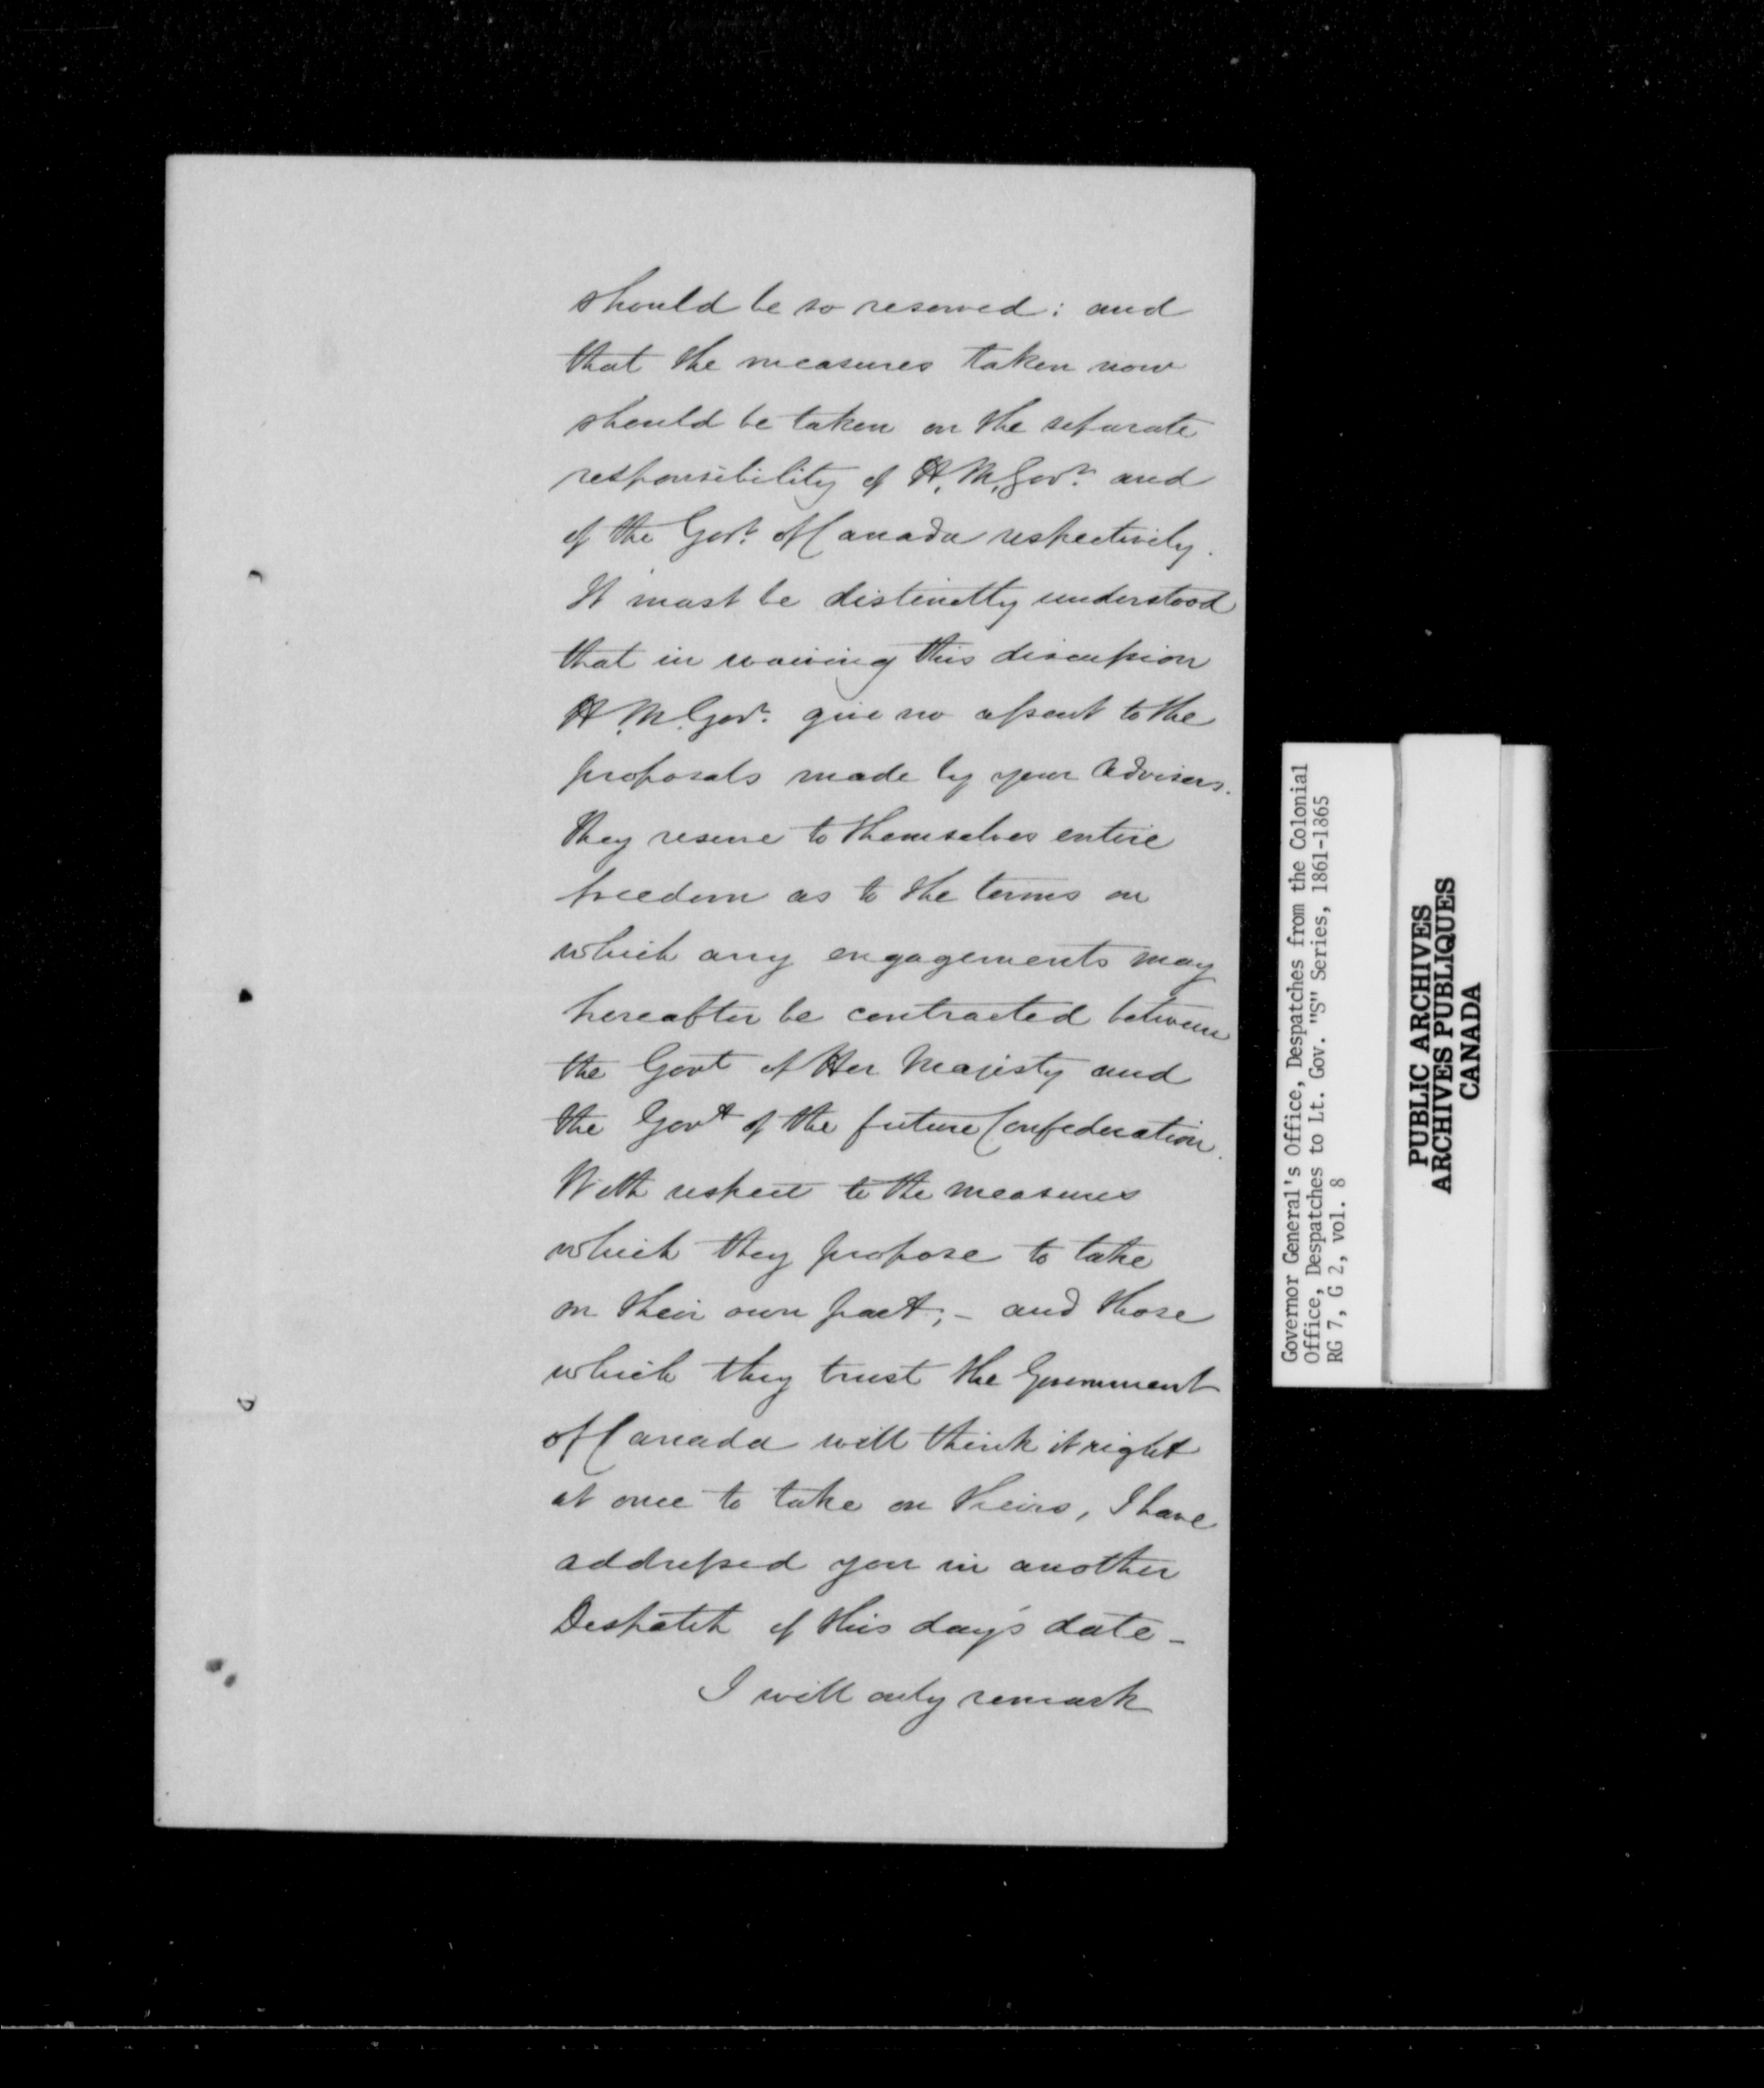 should be so reserved: and
that the measures taken now
should be taken on the separate
responsibility of H.M. Govt. and
of the Govt. of Canada respectively.
It must be distinctly understood
that in waiving this discussion
H.M. Govt. give no assent to the
proposals made by your Advisers.
They reserve to themselves entire
freedom as to the terms on
which any engagements may
hereafter be contracted between
the Govt of Her Majesty and
the Govt of the future Confederation.
With respect to the measures
which they propose to take
on their own part;- and those
which they trust the Government
of Canada will think it right
at once to take on theirs, I have
addressed you in another
Despatch of this day's date -
I will only remark
Governor General's Office, Despatches from the Colonial
Office, Despatches to Lt. Gov. "S" Series, 1861-1865
RG 7, G 2, vol. 8
PUBLIC ARCHIVES
ARCHIVES PUBLIQUES
CANADA